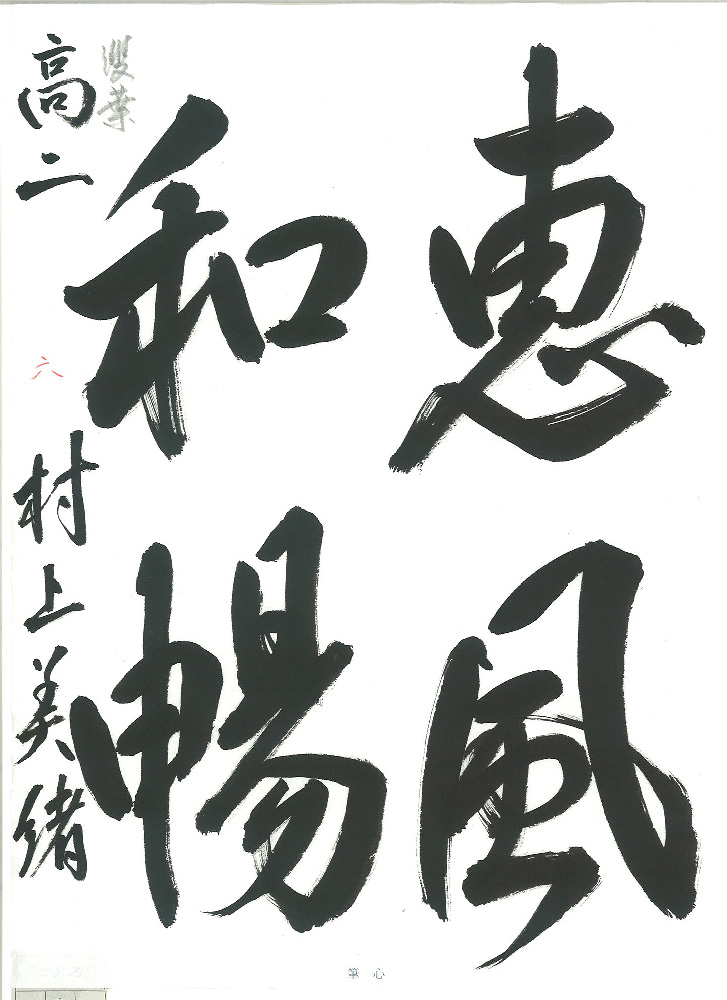 恵風
和暢
双葉
高二
六
村上美緒
筆心